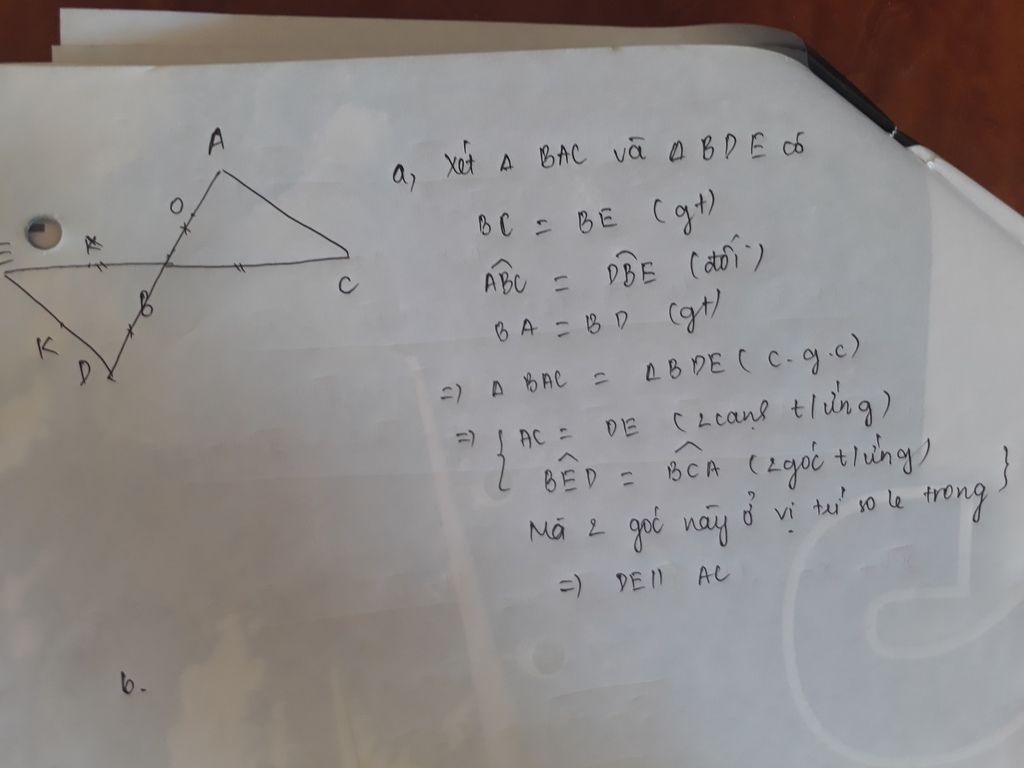 A
O
E
C
B
K
D
a, Xét Δ BAC và Δ BDE có
BC = BE (gt)
ABC = DBE (đối)
BA = BD (gt)
=) Δ BAC = Δ BDE (c.g.c)
=) { AC = DE (2 cạnh t/ứng)
BED = BCA (2 góc t/ứng) }
Mà 2 góc này ở vị trí so le trong
=) DE // AC
b.